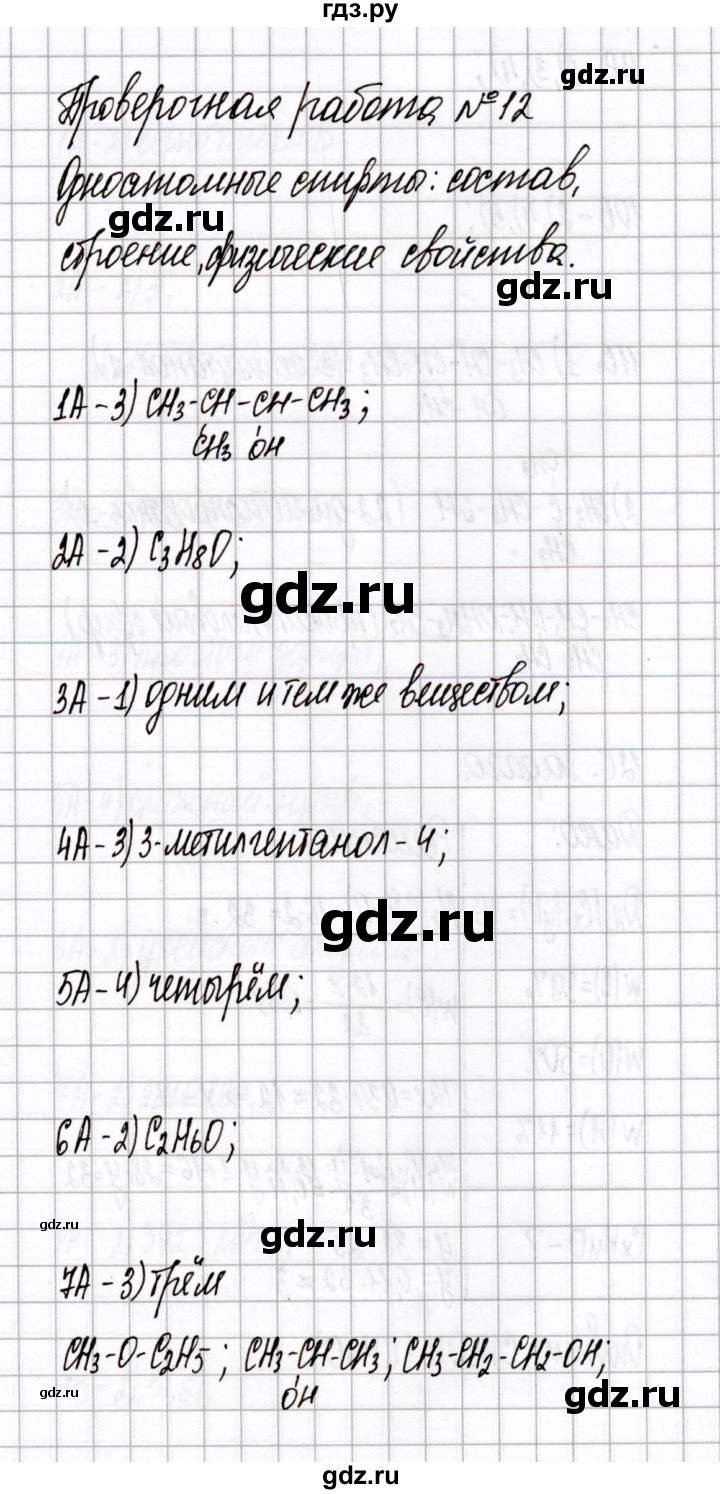 гдз.ру
gdz.ru
Проверочная работа №12
Одноатомные спирты: состав,
gdz.ru
строение, физические свойства.
gdz.ru
1А - 3) CH3-CH-CH-CH3;
CH3 OH
2А - 2) C3H8O;
gdz.ru
3А - 1) одним и тем же веществом;
4А - 3) 3-метилгептанол-4;
gdz.ru
5А - 4) четырём;
6А - 2) C2H6O;
gdz.ru
gdz.ru
7А - 3) трём
CH3-O-C2H5; CH3-CH-CH3; CH3-CH2-CH2-OH;
gdz.ru
OH
gdz.ru
gdz.ru